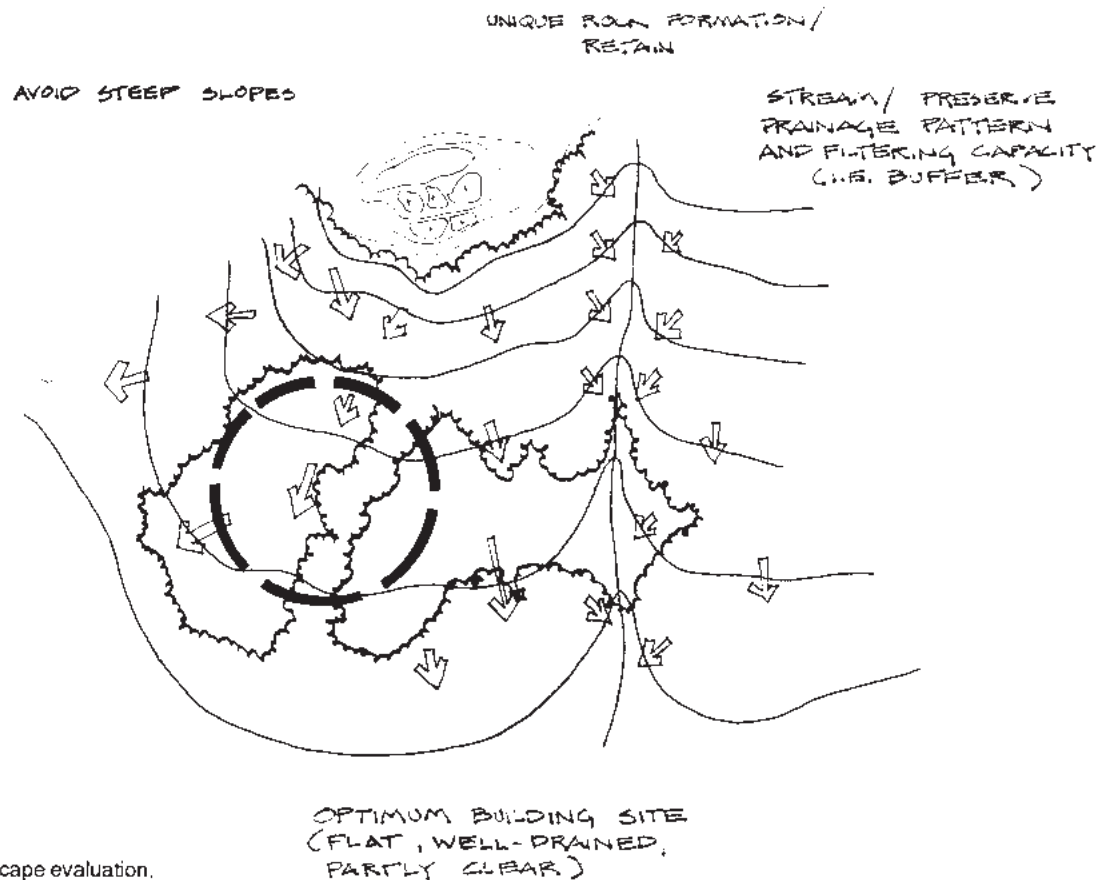 UNIQUE ROCK FORMATION/
RETAIN
AVOID STEEP SLOPES
STREAM/ PRESERVE
DRAINAGE PATTERN
AND FILTERING CAPACITY
(I.E. BUFFER)
OPTIMUM BUILDING SITE
(FLAT, WELL-DRAINED,
PARTLY CLEAR)
cape evaluation.